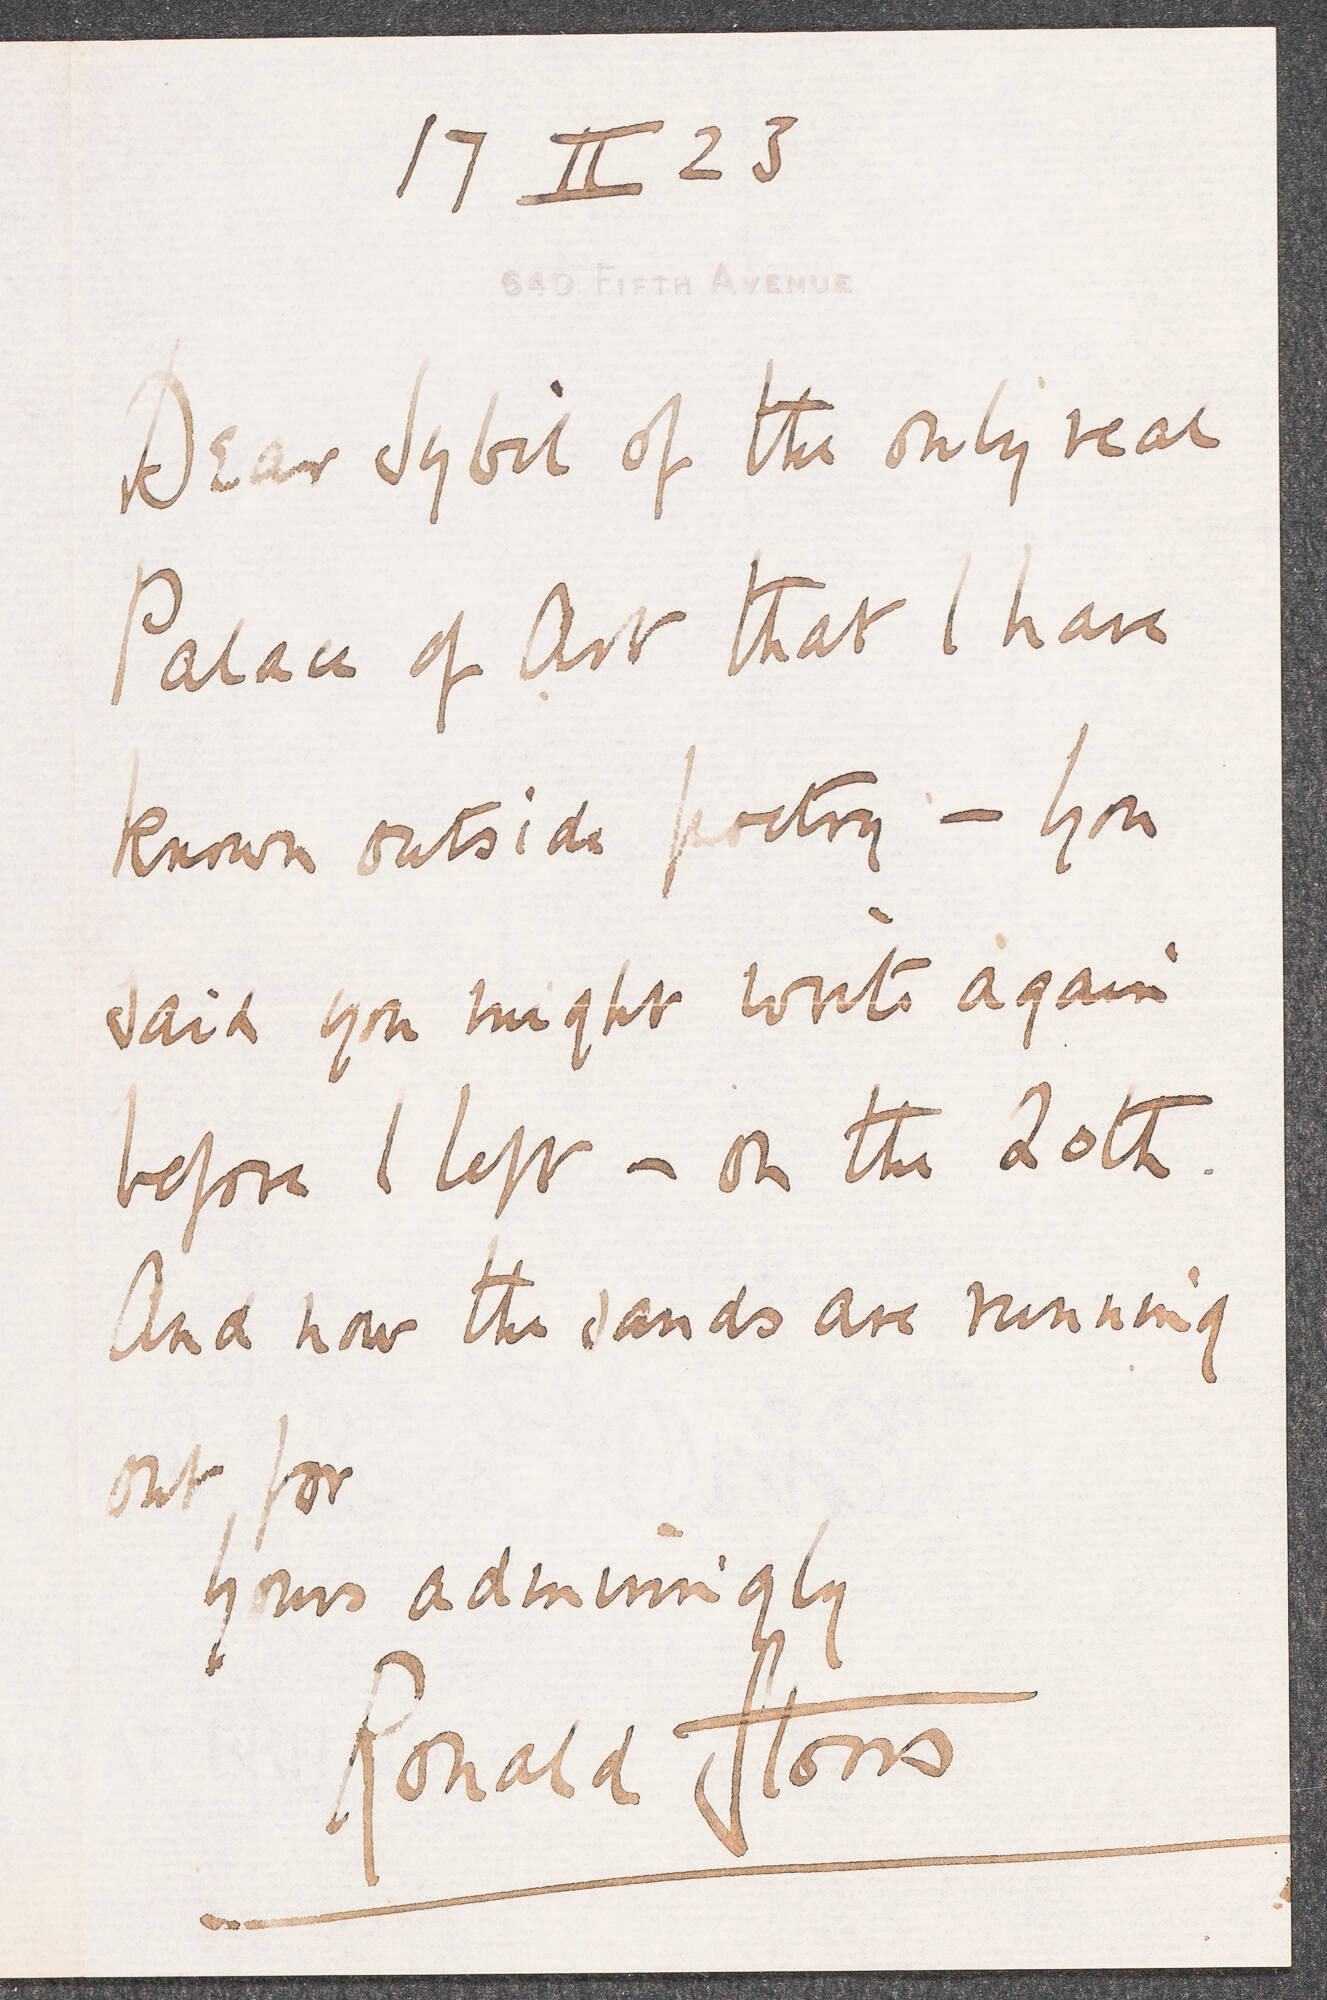 17 II 23
640 FIFTH AVENUE
Dear Sybil of the only real
Palace of Art that I have
known outside poetry – you
said you might write again
before I left – on the 20th.
And now the sands are running
out for
yours admiringly
Ronald Storrs